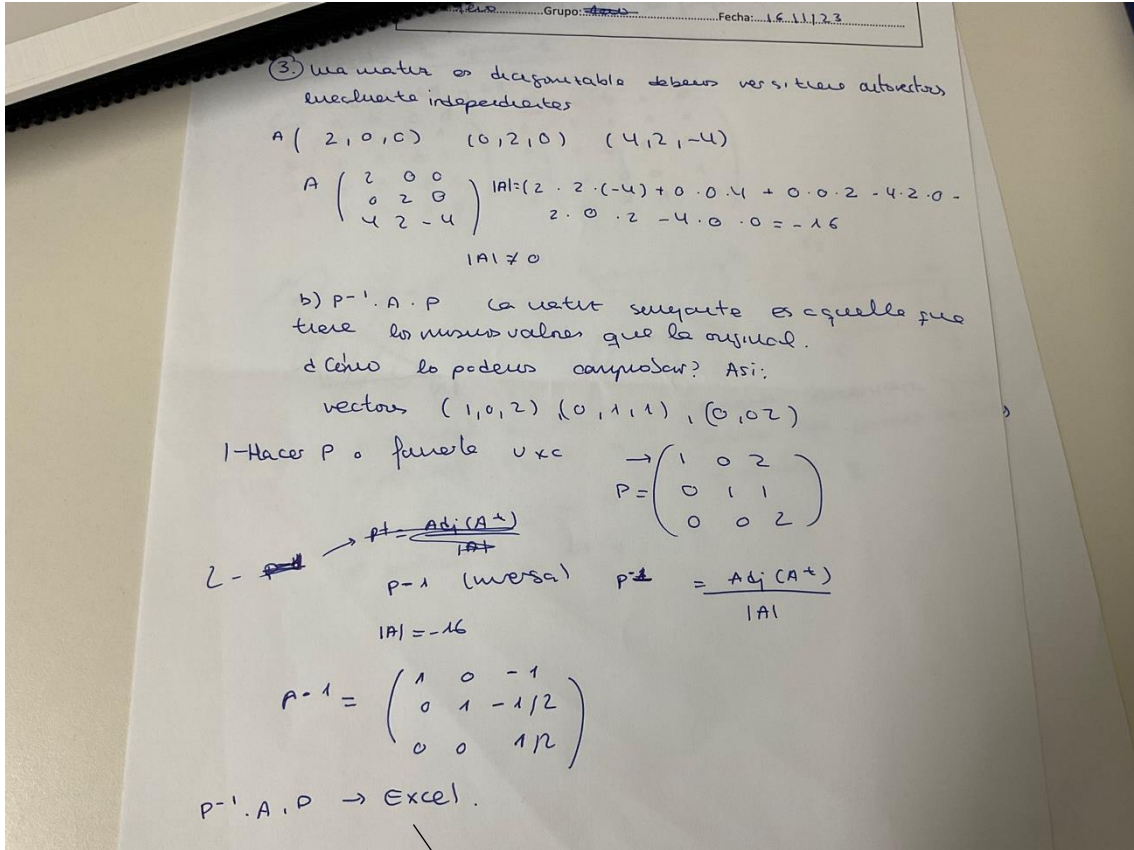 Grupo: Fecha: 16 11 23
3. Una matriz es diagonizable debemos ver si tiene autovectores
linealmente independientes
A ( 2, 0, 0) (0, 2, 0) (4, 2, -4)
A ( 2 0 0 |A|=(2 · 2 · (-4) + 0 · 0 · 4 + 0 · 0 · 2 - 4 · 2 · 0 -
0 2 0 2 · 0 · 2 - 4 · 0 · 0 = -16
4 2 -4 )
|A| ≠ 0
b) P-¹ · A · P La matriz semejante es aquella que
tiene los mismos valores que la original.
¿Cómo lo podemos comprobar? Asi:
vectores (1, 0, 2) (0, 1, 1), (0, 0 2)
1-Hacer P o ponerle
→ ( 1 0 2
P = 0 1 1
0 0 2 )
2 - → = Adj (A t)
|A|
P-1 (inversa) P-1 = Adj (A t)
|A|
|A| = -16
A-1 = ( 1 0 -1
0 1 -1/2
0 0 1/2 )
P-¹ · A · P → Excel.